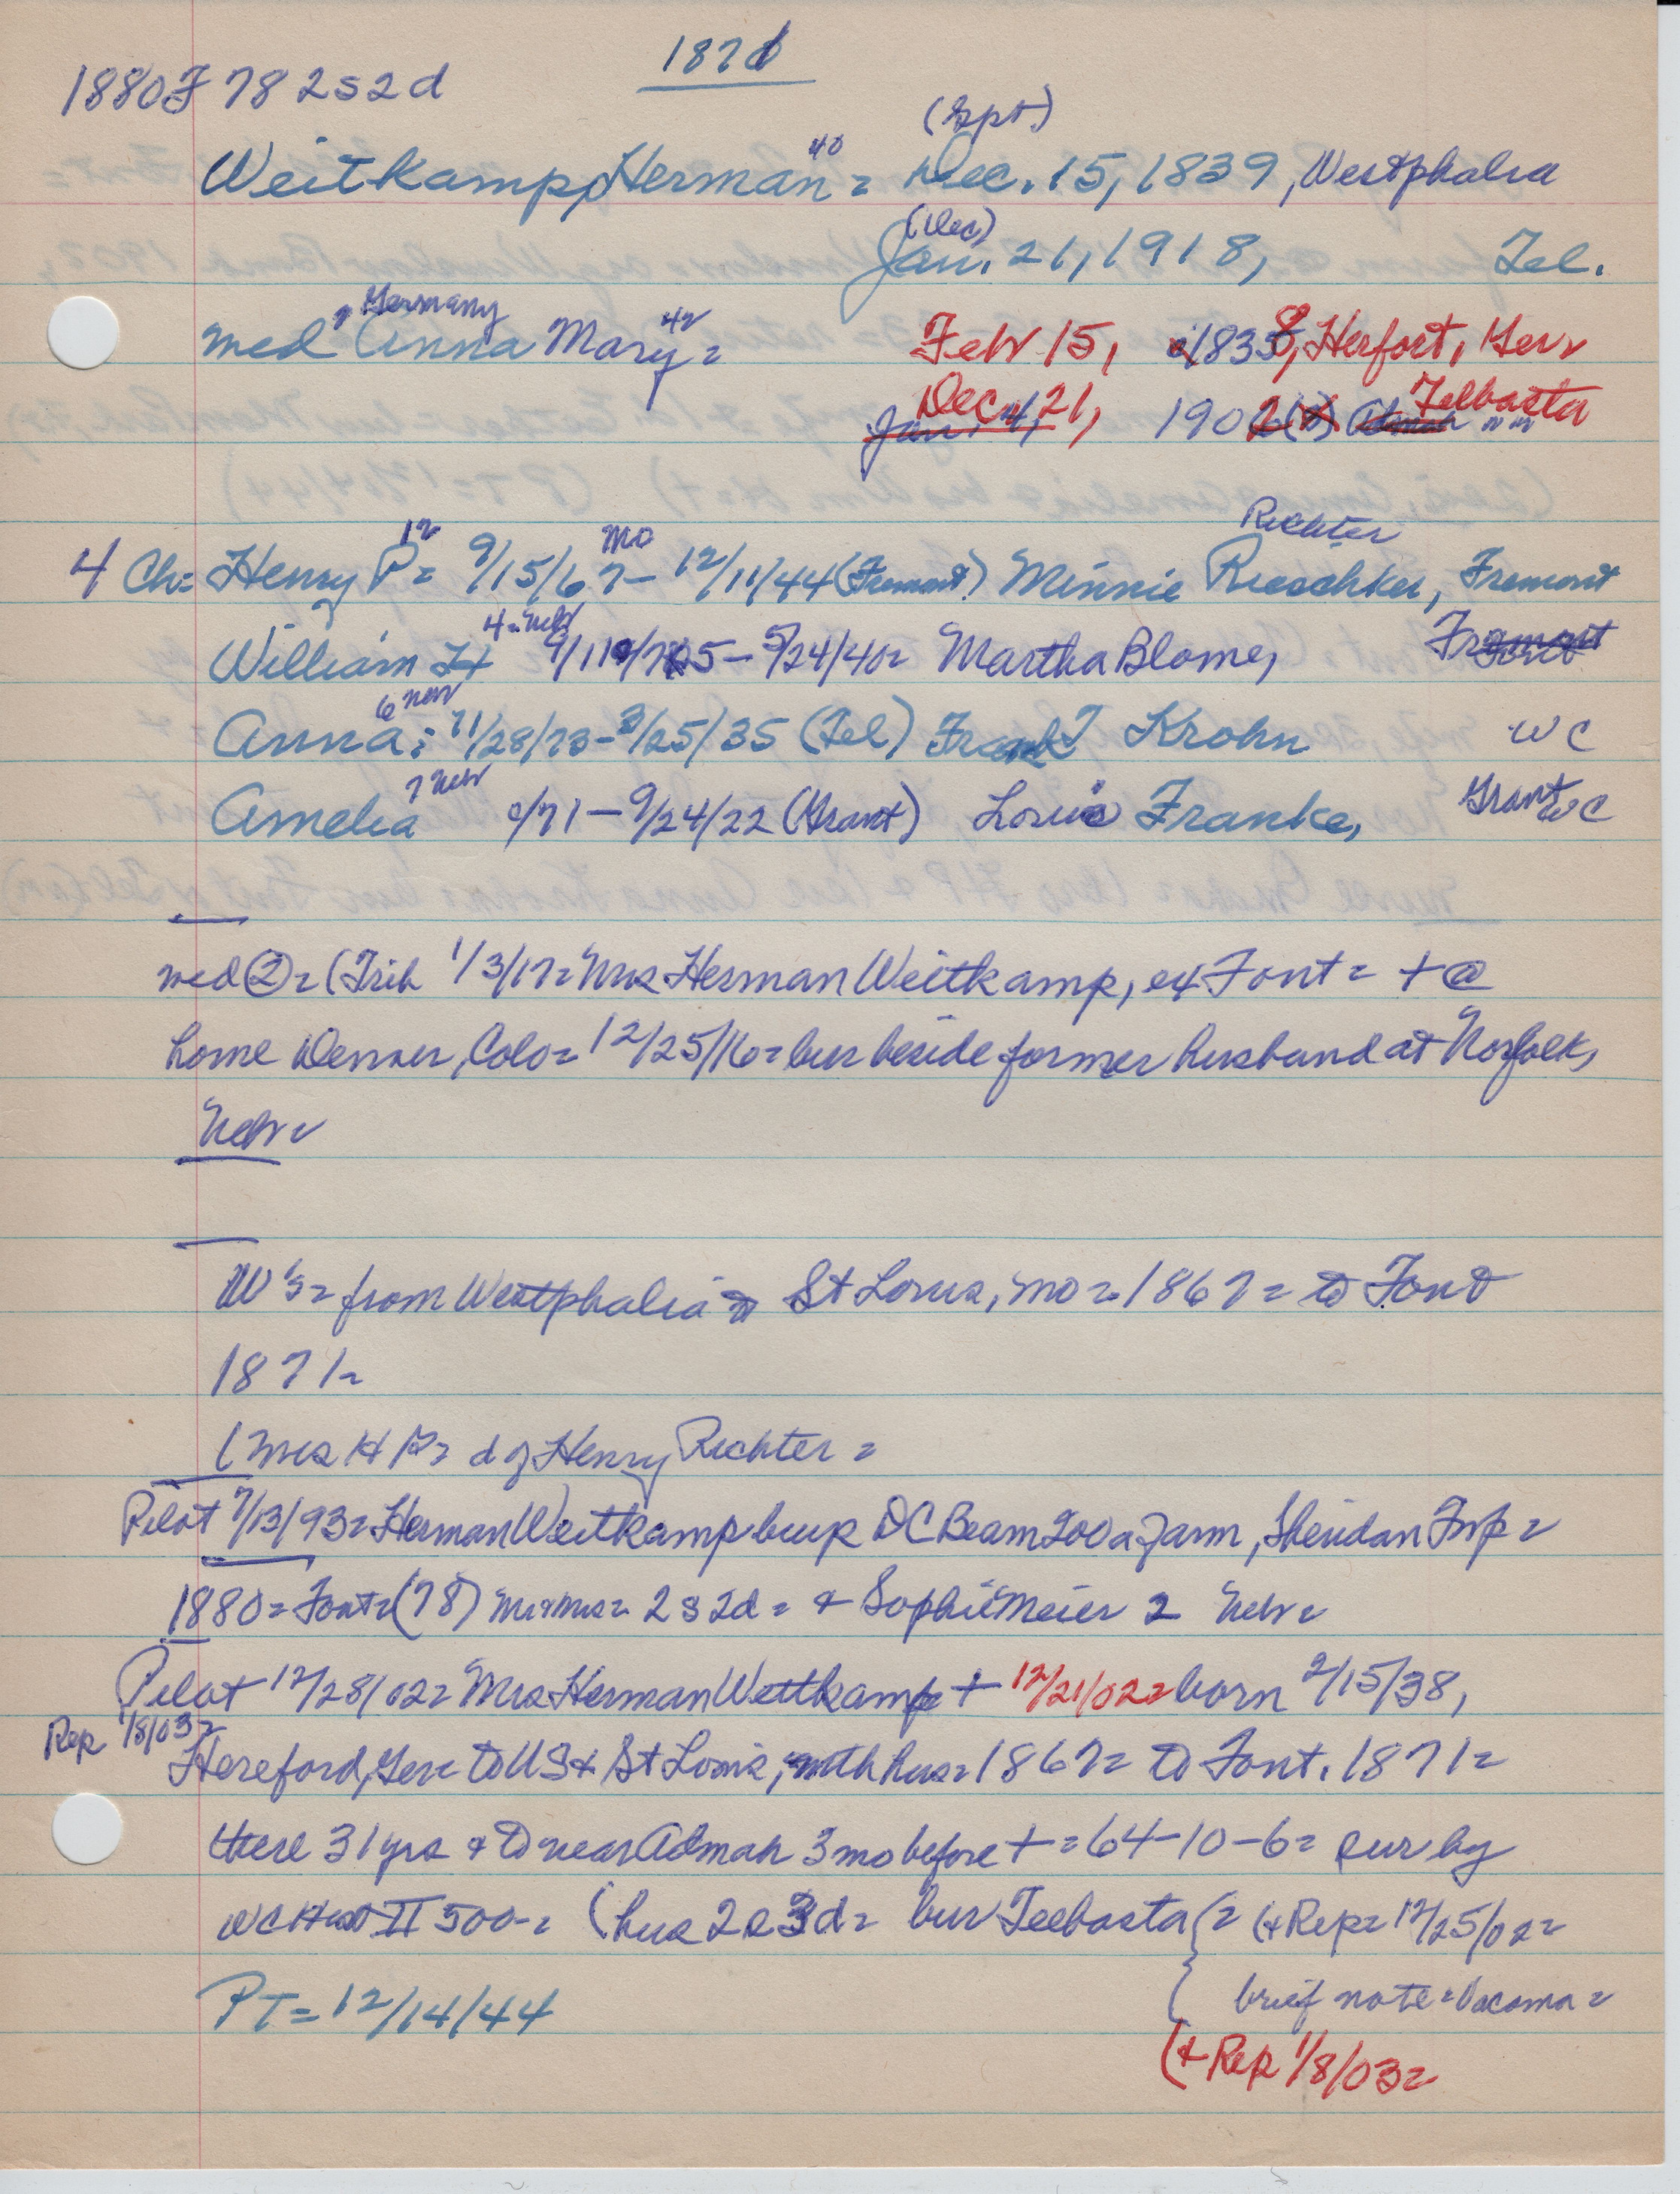 1871
1880 F 78 2s2d
(Sept.)
Weitkamp, Herman 40 = Dec. 15, 1839, Westphalia
(Dec)
Jan. 21, 1918, Tel.
Germany
med Anna Mary 42 = Feb 15, 1838, Herfort, Ger
Dec 21, 1902 Telbasta
Jan. 4,
Richter
4 Ch = Henry P 12 = 9/15/67 Mo - 12/11/44 (Fremont) Minnie Rieschker, Fremont
William H 4=Neb 9/11/75 - 5/24/40 = Martha Blome, Fremont
Anna: 6 Neb 11/28/73 - 3/25/35 (Tel) Frank T Krohn WC
Amelia 7 Neb /71 - 9/24/22 (Grant) Louis Franke, Grant WC
med ② = (Trib 1/3/17 = Mrs Herman Weitkamp, ex Font = + @
home Denver, Colo = 12/25/16 = bur beside former husband at Norfolk,
Neb =
W's = from Westphalia to St Louis, Mo = 1867 = to Font
1871 =
(Mrs H P = d of Henry Richter =
Pilot 7/13/93 = Herman Weitkamp buys D C Beam 200 a farm, Sheridan Twp =
1880 = Font = (78) Mr & Mrs = 2 s 2d = & Sophie Meier 2 Neb =
Pilot 12/28/02 = Mrs Herman Weitkamp + 12/21/02 = born 2/15/38,
Rep 1/8/03 =
Hereford, Ger = to US & St Louis, with hus = 1867 = to Font. 1871 =
there 31 yrs & to near Admah 3 mo before + = 64-10-6 = sur by
WC Hist II 500 = (hus 2 s 3d = bur Telbasta { = (& Rep = 12/25/02 =
brief note = Vacoma =
PT = 12/14/44
(& Rep 1/8/03 =